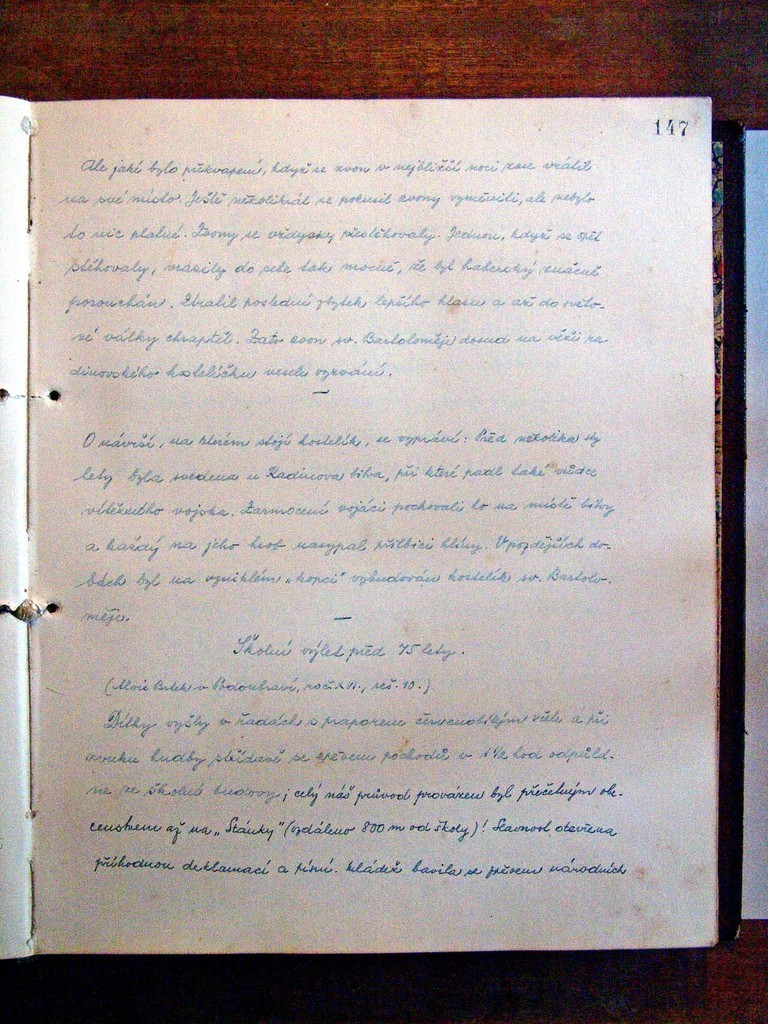 147
Ale jaké bylo překvapení, když se zvon v nejbližší noci zase vrátil
na své místo. Ještě několikrát se pokusil zvony vyměniti, ale nebylo
to nic platné. Zvony se vždycky přestěhovaly. Jednou, když se opět
stěhovaly, vrazily do sebe tak mocně, že byl haberský značně
porouchán. Ztratil poslední zbytek lepšího hlasu a až do světo-
vé války chraptěl. Zato zvon sv. Bartoloměje dosud na věži ra-
dinovského kostelíčku vesele vyzvání.
—
O návrší, na kterém stojí kostelík, se vypráví: Před několika sty
lety byla svedena u Radinova bitva, při které padl také vůdce
vítězného vojska. Zarmoucení vojáci pochovali ho na místě bitvy
a každý na jeho hrob nasypal přilbici hlíny. V pozdějších do-
bách byl na vzniklém „kopci" vybudován kostelík sv. Bartolo-
měje.
—
Školní výlet před 75 lety.
v Podoubraví, roč. XVI., seš. 10.)
Dítky vyšly v řadách s praporem červenobílým v čele a při
zvuku hudby střídavě se zpěvem pochodů v 1½ hod odpůld-
ne ze školní budovy; celý náš průvod provázen byl přečetným obe-
censtvem až na „Stánky" (vzdáleno 800 m od školy)! Slavnost otevřena
příhodnou deklamací a písní. Mládež bavila se zpěvem národních